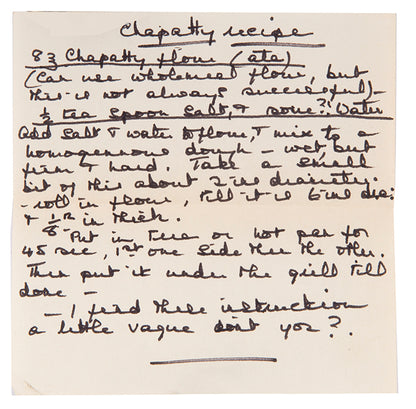 Chapatty recipe
8 oz Chapatty flour (ata)
(Can use wholemeal flour, but
this is not always successful)-
½ tea spoon salt, & some?! Water
Add salt & water to flour, & mix to a
homogeneous dough - wet but
firm & hard. Take a small
bit of this about 2 ins diameter.
- roll in flour, till it is 6 ins dia:
& 1/8 in thick.
Put in Tava or hot pan for
45 sec, 1st one side then the other.
Then put it under the grill till
done -
- I find these instruction
a little vague don't you?.